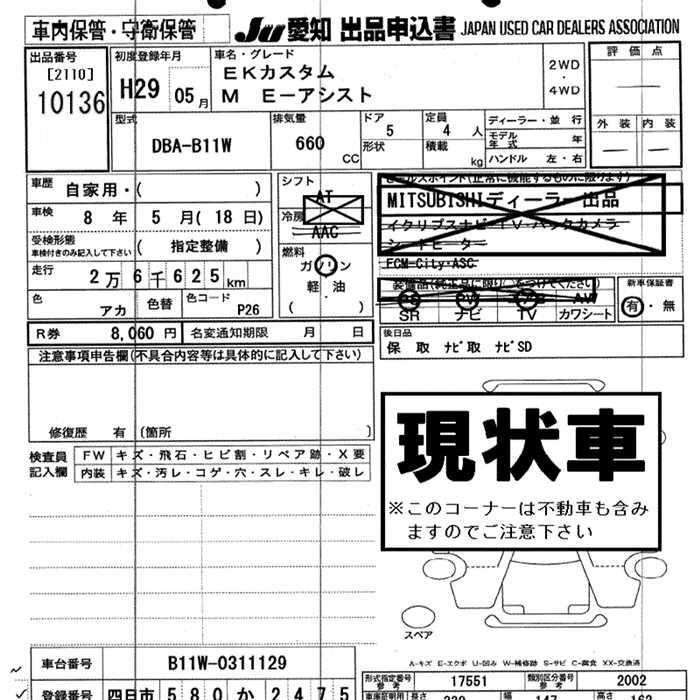 車内保管・守衛保管
JU 愛知 出品申込書 JAPAN USED CAR DEALERS ASSOCIATION
出品番号
[2110]
10136
初度登録年月
H29 05月
車名・グレード
EKカスタム
M E－アシスト
2WD
・
4WD
評価点
外装 内装
型式
DBA-B11W
排気量
660 CC
ドア
5
定員
4 人
形状
積載 kg
ディーラー・並行
モデル年式 年
ハンドル 左・右
車歴 自家用・( )
車検 8 年 5 月( 18 日)
受検形態
車検付きのみ記入して下さい ( 指定整備 )
走行 2万 6千 625km
色 アカ 色替 色コード P26
シフト
AT
冷房
AAC
燃料
ガソリン
軽・油
( )
セールスポイント(正常に機能するものに限ります)
MITSUBISHIディーラー出品
シートヒーター
ECM-City-ASC
装備品(純正品に限り)○をつけてください
AW
SR ナビ TV カワシート
新車保証書
有・無
R券 8,060 円 名変通知期限 月 日
後日品
保 取 ナビ取 ナビSD
注意事項申告欄(不具合内容等は具体的に記入して下さい)
修復歴 有 〔箇所 〕
検査員記入欄
FW キズ・飛石・ヒビ割・リペア跡・X要
内装 キズ・汚レ・コゲ・穴・スレ・キレ・破レ
現状車
※このコーナーは不動車も含み
ますのでご注意下さい
スペア
A-キズ E-エクボ U-凹み W-補修跡 S-サビ C-腐食 XX-交換済
車台番号 B11W-0311129
形式指定番号 参考 17551 類別区分番号 参考 2002
登録番号 四日市 580 か 2475
長さ 339 幅 147 高さ